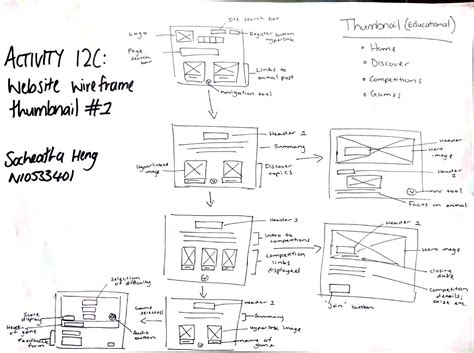 ACTIVITY 12C:
Website wireframe
thumbnail #1
Socheatha Heng
N10533401
Thumbnail (Educational)
• Home
• Discover
• Competitions
• Games
Site search bar
Logo
Register button
hyperlink
Page
search
bar
Links to
animal post
navigation tool
Header 1
Summary
Hyperlinked
image
Discover
topics
Header 1
Hero
image
nav tool
Facts on animal
Header 1
Intro to
competitions
Competition
links
displayed
Header 1
Hero image
closing
date
Competition
details,
rules etc.
"Join" button
Header 1
Summary
Hyperlink image
name of
game
Selection
of difficulty
Game
selected
Score
display
Header
of game
Feedback
form
Audio
button